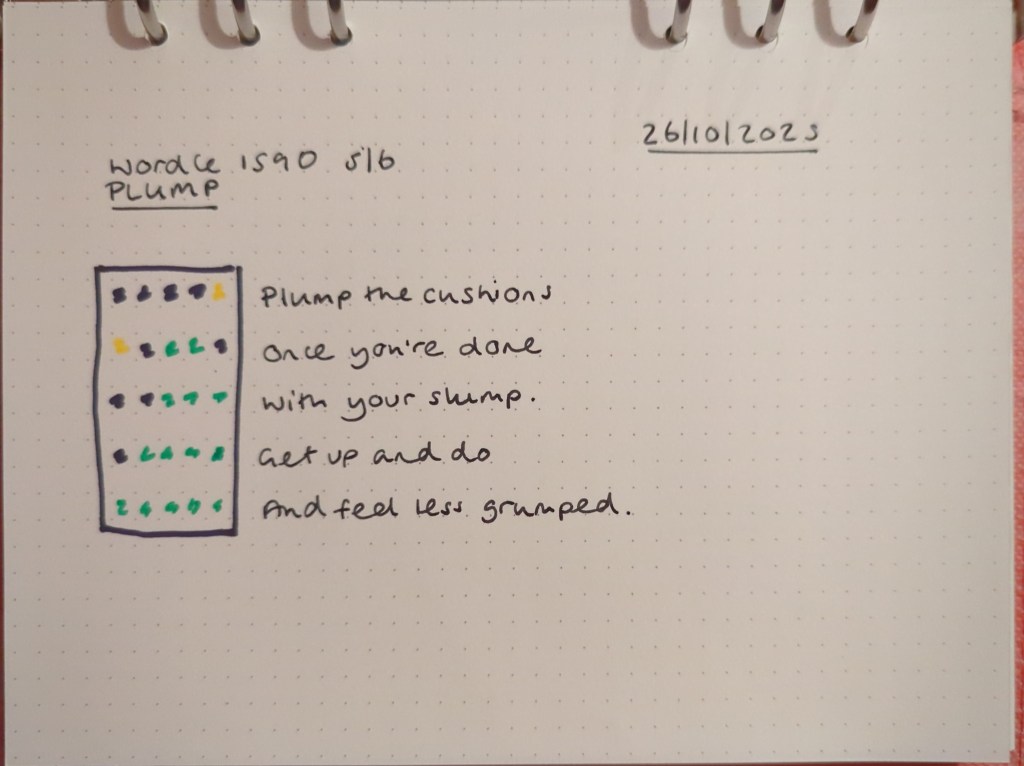 26/10/2025
Wordle 1590 5/6
PLUMP
Plump the cushions
Once you're done
With your slump.
Get up and do
And feel less grumped.